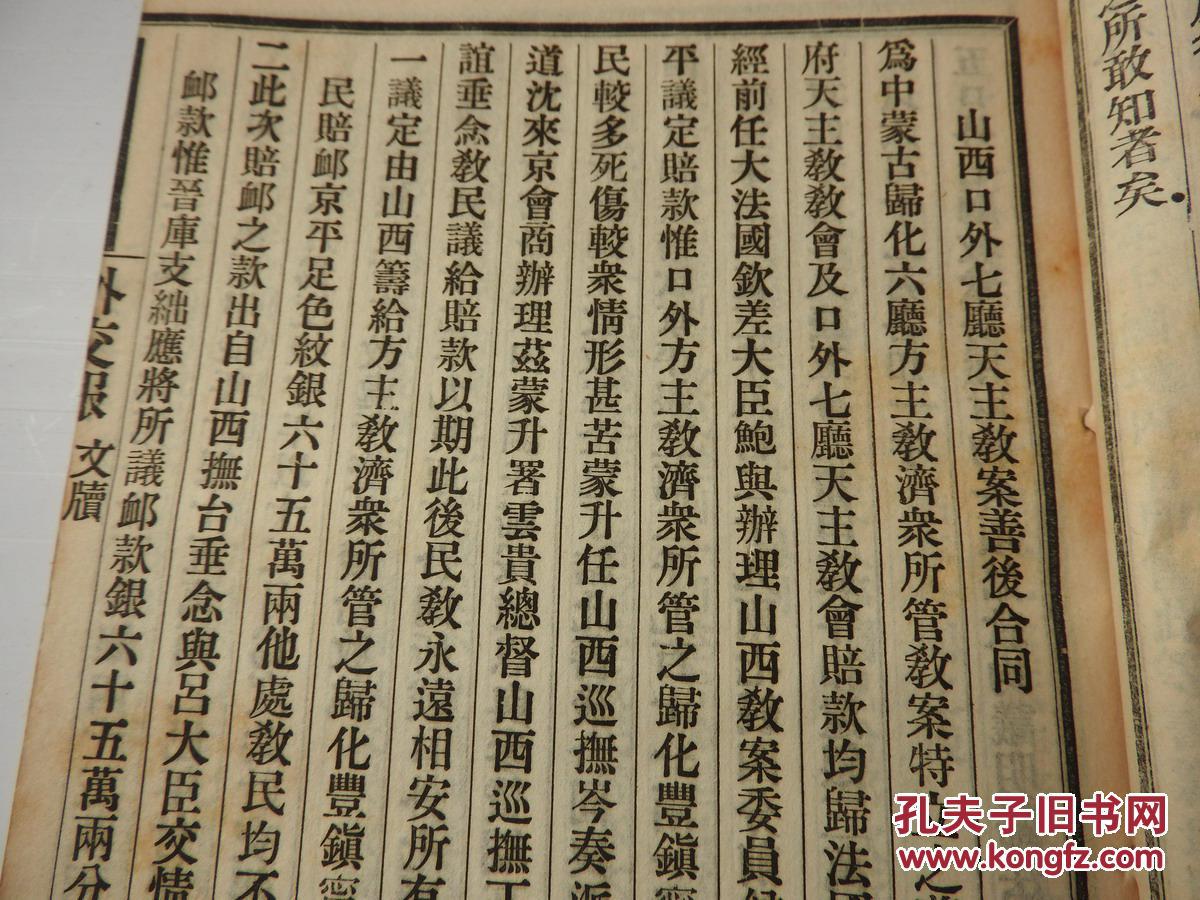 所敢知者矣
山西口外七廳天主敎案善後合同
爲中蒙古歸化六廳方主敎濟衆所管敎案特
府天主敎敎會及口外七廳天主敎會賠款均歸法國
經前任大法國欽差大臣鮑與辦理山西敎案委員
平議定賠款惟口外方主敎濟衆所管之歸化豐鎭寧
民較多死傷較衆情形甚苦蒙升任山西巡撫岑奏派
道沈來京會商辦理茲蒙升署雲貴總督山西巡撫丁
誼垂念敎民議給賠款以期此後民敎永遠相安所有
一議定由山西籌給方主敎濟衆所管之歸化豐鎭寧
民賠卹京平足色紋銀六十五萬兩他處敎民均不
二此次賠卹之款出自山西撫台垂念與呂大臣交情
卹款惟晉庫支絀應將所議卹款銀六十五萬兩分
外交報 文牘
孔夫子旧书网
www.kongfz.com